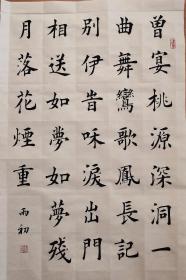 曾宴桃源深洞一
曲舞鸞歌鳳長記
別伊時和淚出門
相送如夢如夢殘
月落花煙重
雨初